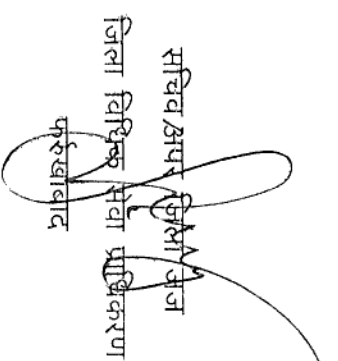 सचिव/अपर जिला जज
जिला विधिक सेवा प्राधिकरण
फर्रुखाबाद